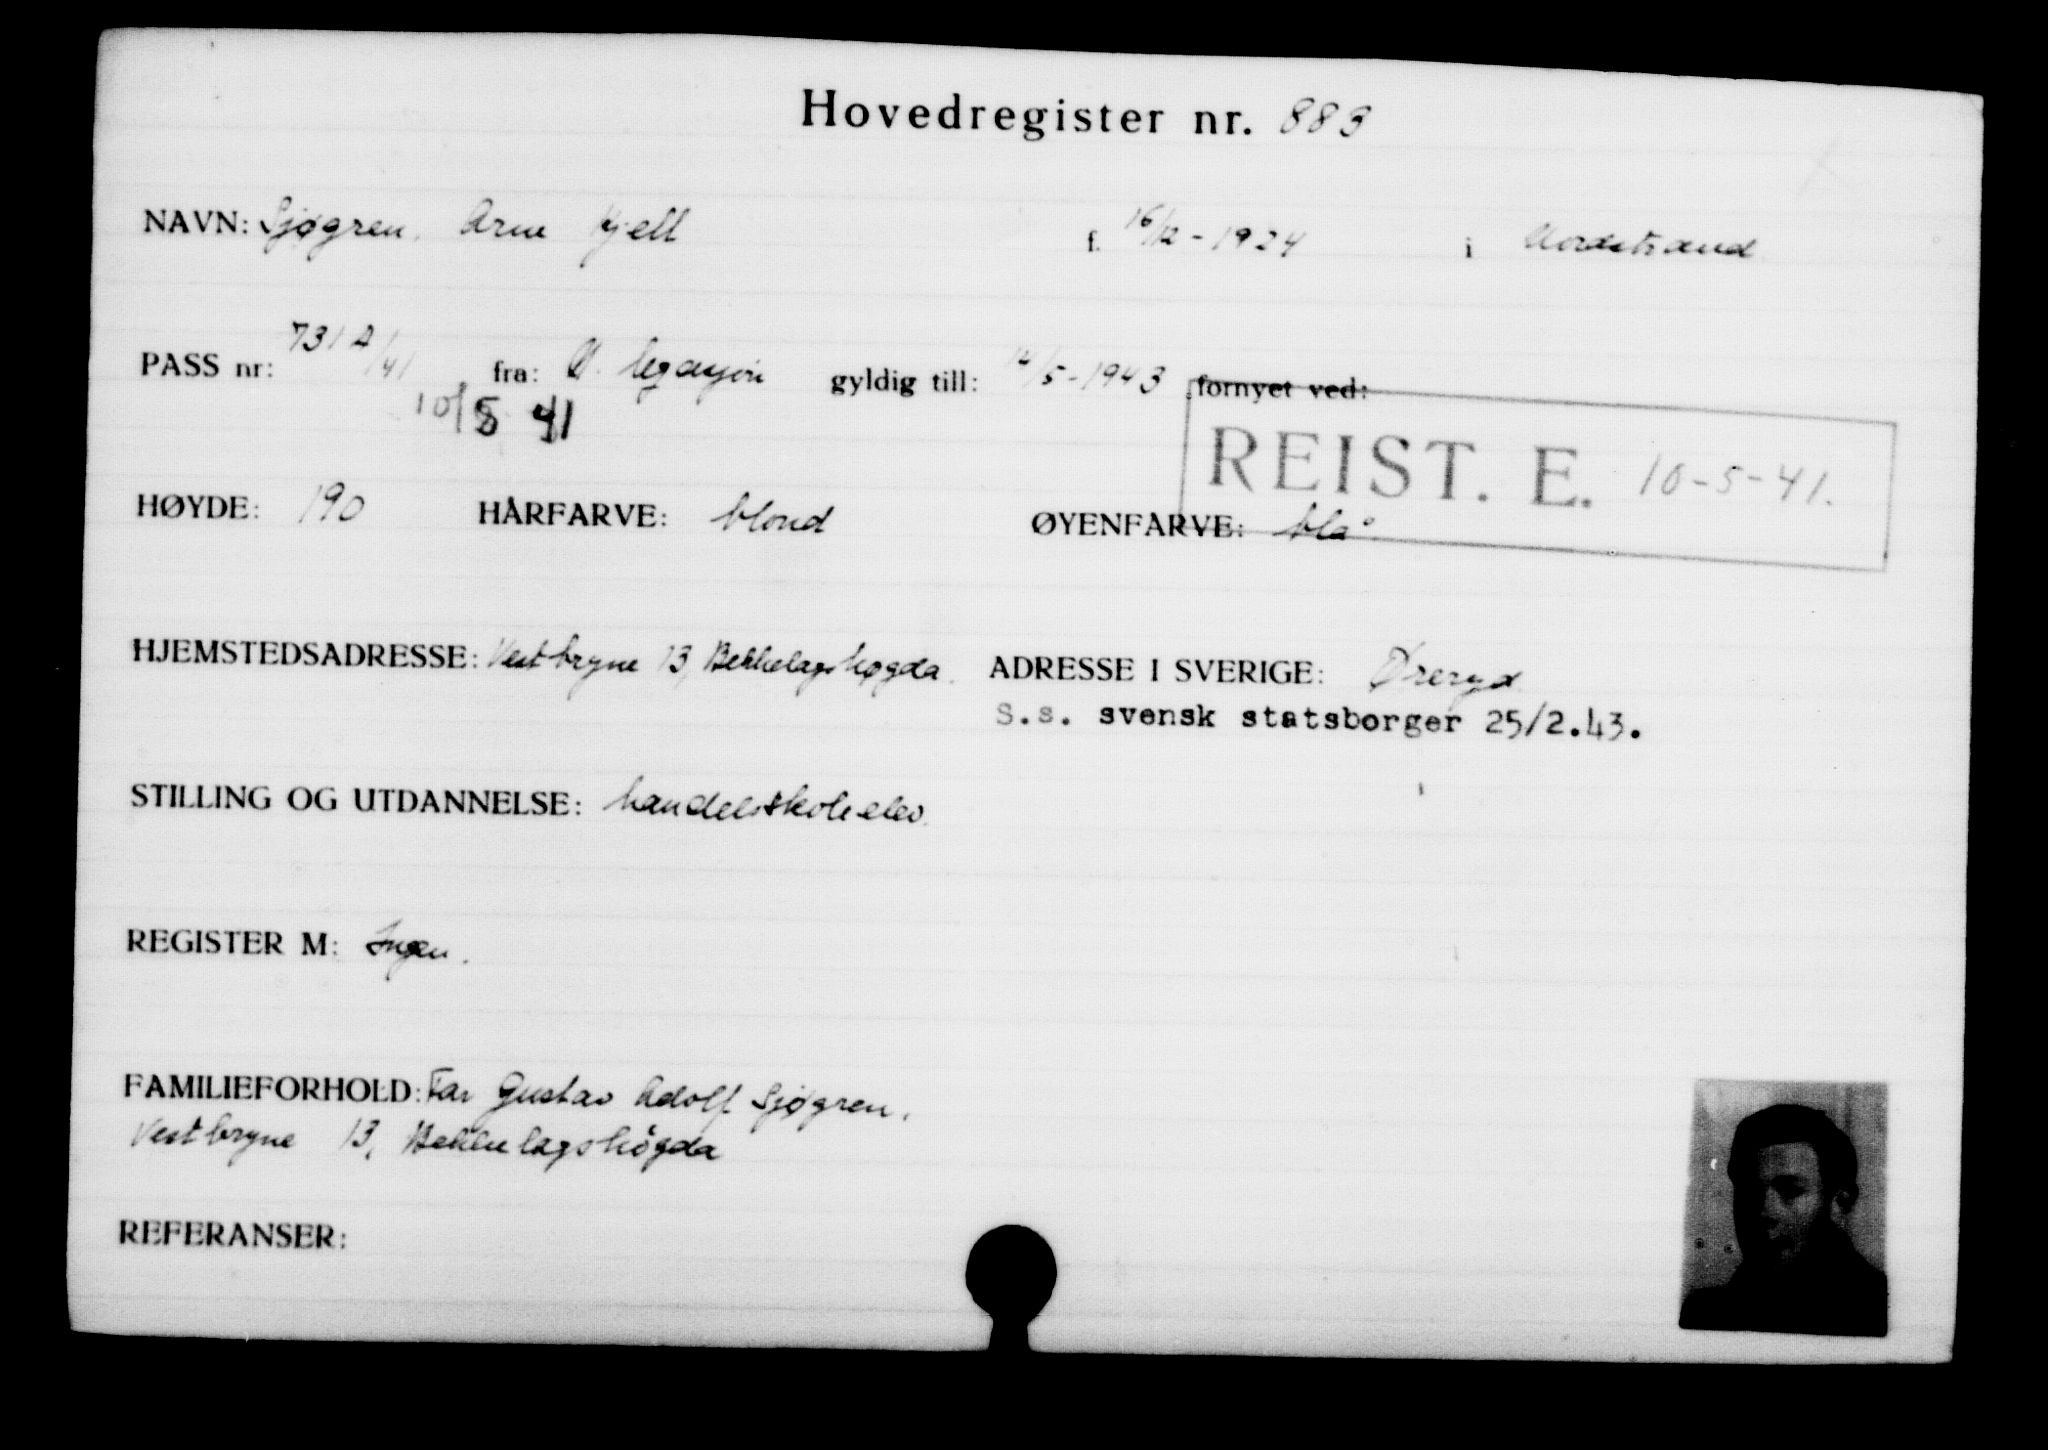 Hovedregister nr. 883
NAVN: Sjøgren, Arne Kjell f. 16/12-1924 i Nordstrand
PASS nr: 731A/41 fra: N. legasjon gyldig till: 12/5-1943 fornyet ved:
10/5 41
REIST. E. 10-5-41.
HØYDE: 190 HÅRFARVE: blond ØYENFARVE: blå
HJEMSTEDSADRESSE: Vestbryne 13, Bekkelagshøgda. ADRESSE I SVERIGE: Øreryd
S.s. svensk statsborger 25/2.43.
STILLING OG UTDANNELSE: handelsskoleelev.
REGISTER M: Ingen.
FAMILIEFORHOLD: Far Gustav Adolf Sjøgren,
Vestbryne 13, Bekkelagshögda
REFERANSER: